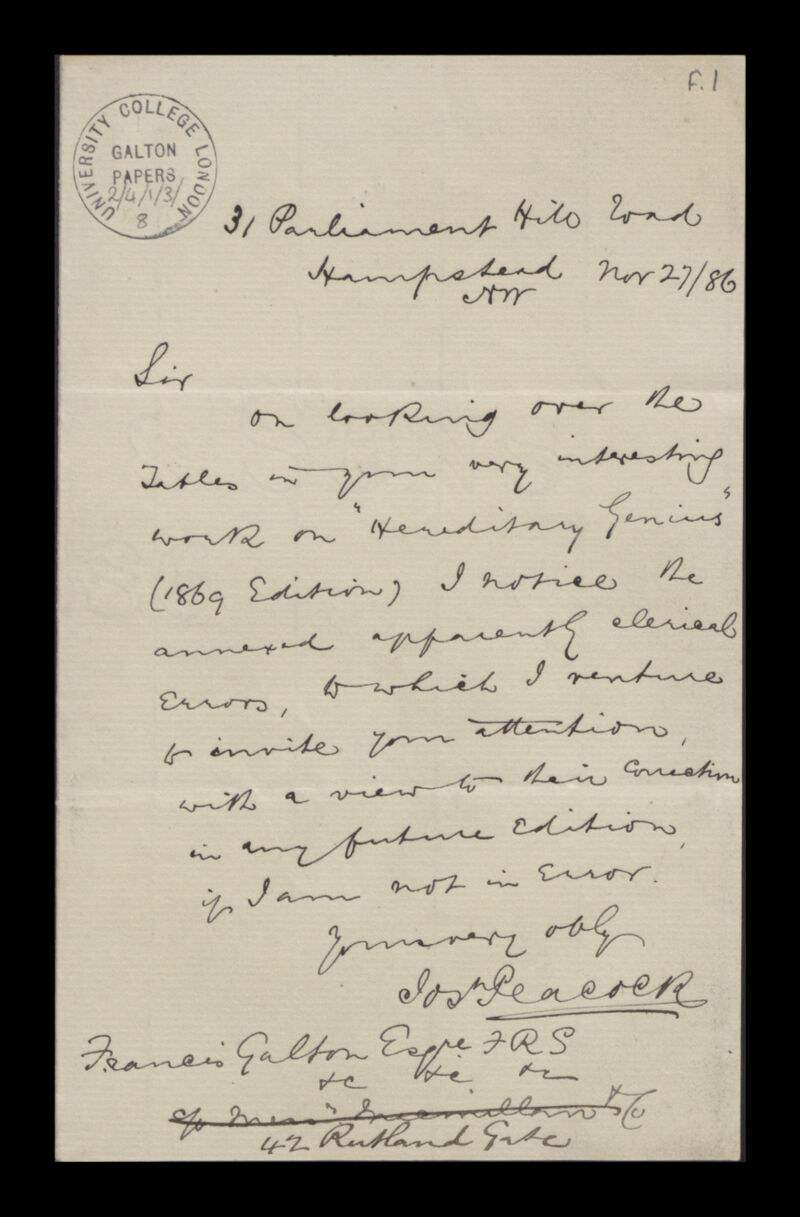 F.1
UNIVERSITY COLLEGE LONDON
GALTON
PAPERS
2/4/1/3/
8
31 Parliament Hill Road
Hampstead Nov 27/86
NW
Sir
on looking over the
Tables in your very interesting
work on "Hereditary Genius"
(1869 Edition) I notice the
annexed apparently clerical
Errors, to which I venture
to invite your attention,
with a view to their Correction
in any future Edition,
if I am not in Error.
Yours very obly
Josh Peacock
Francis Galton Esqre FRS
&c &c &c
c/o Messrs Macmillan & Co
42 Rutland Gate